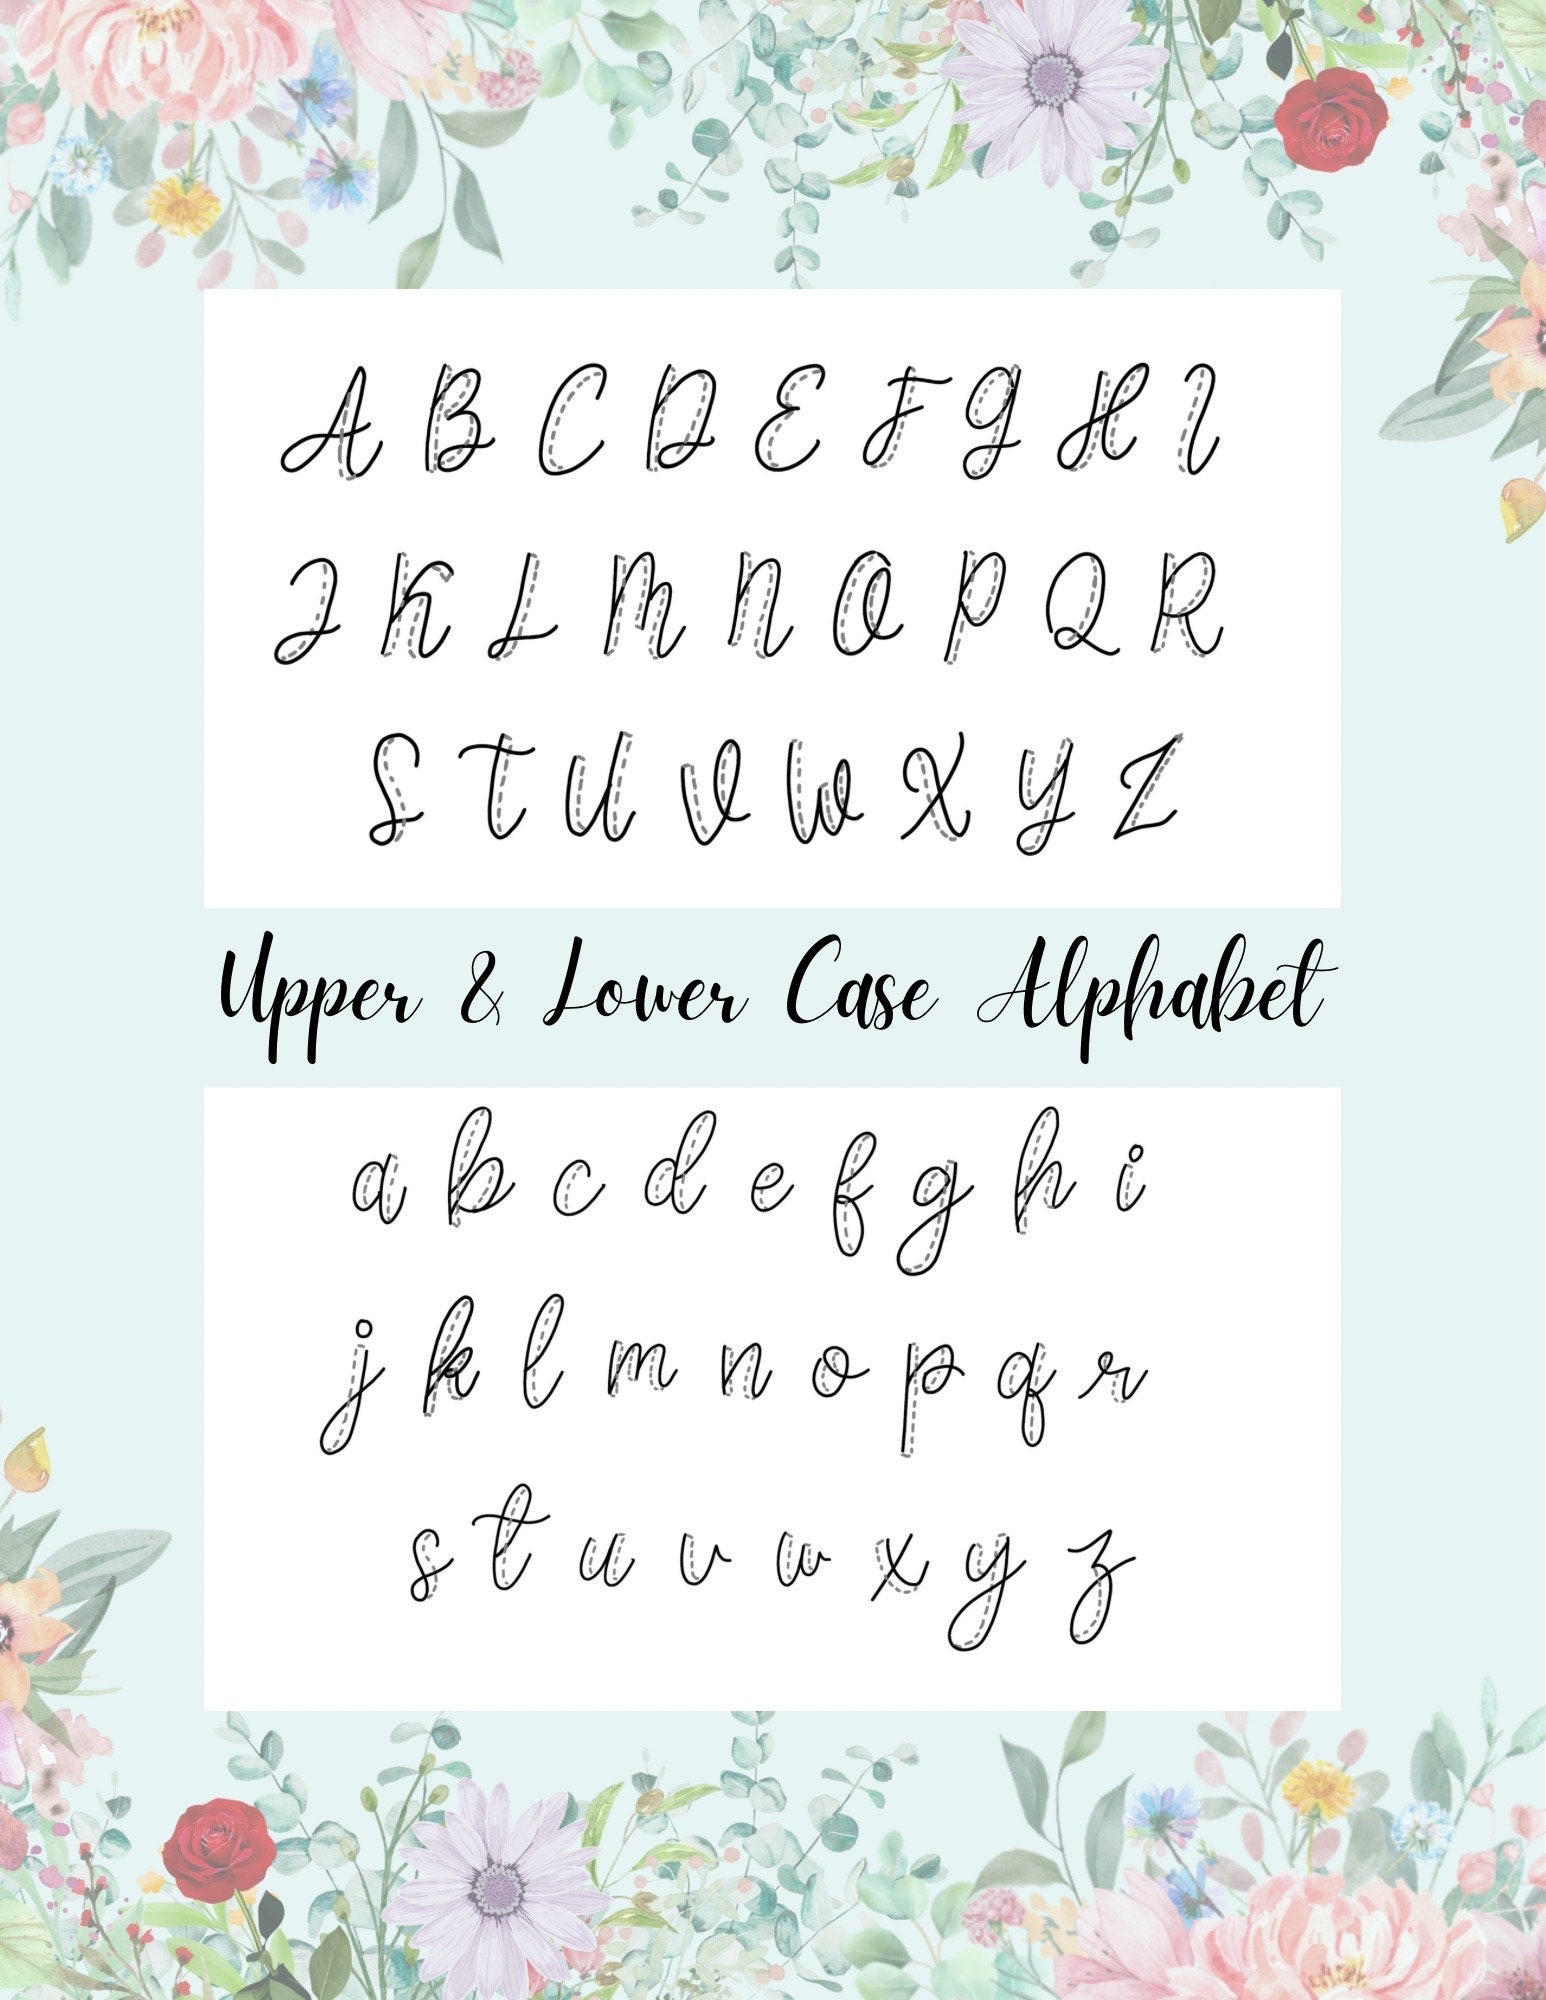 A B C D E F G H I
J K L M N O P Q R
S T U V W X Y Z
Upper & Lower Case Alphabet
a b c d e f g h i
j k l m n o p q r
s t u v w x y z